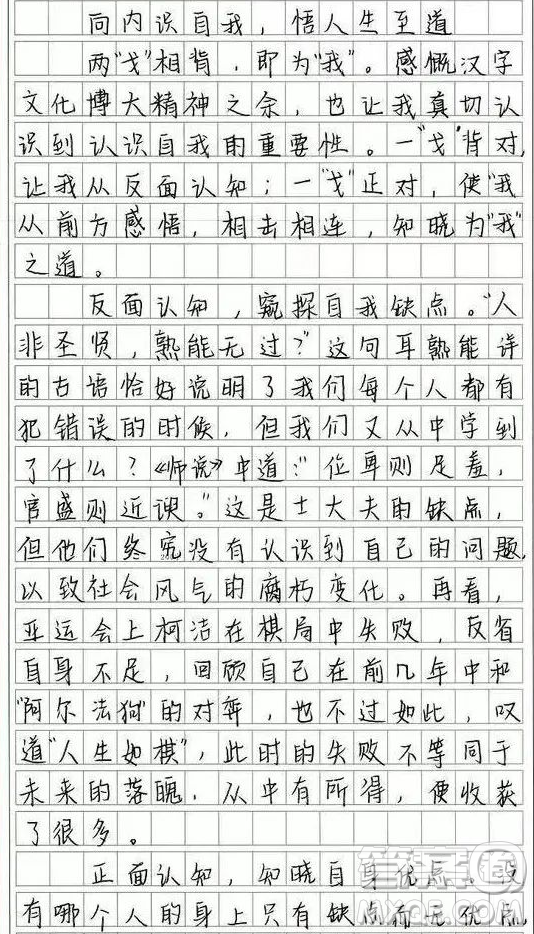 向内识自我，悟人生至道
两"戈"相背，即为"我"。感慨汉字
文化博大精神之余，也让我真切认
识到认识自我的重要性。一"戈"背对，
让我从反面认知；一"戈"正对，使"我
从前方感悟，相击相连，知晓为"我"
之道。
反面认知，窥探自我缺点。"人
非圣贤，熟能无过？"这句耳熟能详
的古语恰好说明了我们每个人都有
犯错误的时候，但我们又从中学到
了什么？《师说》中道："位卑则足羞，
官盛则近谀。"这是士大夫的缺点，
但他们终究没有认识到自己的问题，
以致社会风气的腐朽变化。再看，
亚运会上柯洁在棋局中失败，反省
自身不足，回顾自己在前几年中和
"阿尔法狗"的对弈，也不过如此，叹
道"人生如棋"，此时的失败不等同于
未来的落魄，从中有所得，便收获
了很多。
正面认知，知晓自身优点。没
有哪个人的身上只有缺点而无优点，
答案圈